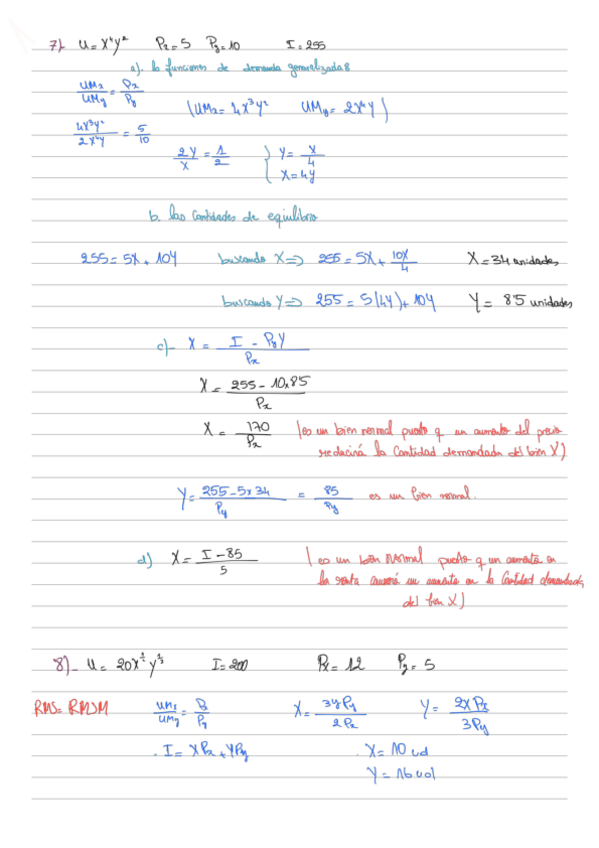 7)- U = X⁴Y²   Px = 5   Py = 10   I = 255
a). la funciones de demanda generalizadas
UMx/UMy = Px/Py   (UMx = 4X³Y²   UMy = 2X⁴Y)
4X³Y²/2X⁴Y = 5/10   2Y/X = 1/2   { Y = X/4
X = 4Y
b. las Cantidades de equilibrio
255 = 5X + 10Y   buscando X => 255 = 5X + 10X/4   X = 34 unidades
buscando Y => 255 = 5(4Y) + 10Y   Y = 85 unidades
c)- X = I - PyY / Px
X = 255 - 10x85 / Px
X = 170/Px (es un bien normal puesto q un aumento del precio
reducirá la Cantidad demandada del bien X)
Y = 255 - 5x34 / Py = 85/Py es un bien normal.
d) X = I - 85 / 5 (es un bien normal puesto q un aumento en
la renta causará un aumento en la Cantidad demandada
del bien X)
8)- U = 20X Y   I = 200   Px = 12   Py = 5
RMS = RMSM   UMx/UMy = Px/Py   X = 3yPy/2Px   Y = 2XPx/3Py
. I = XPx + YPy   . X = 10 ud
Y = 16 ud